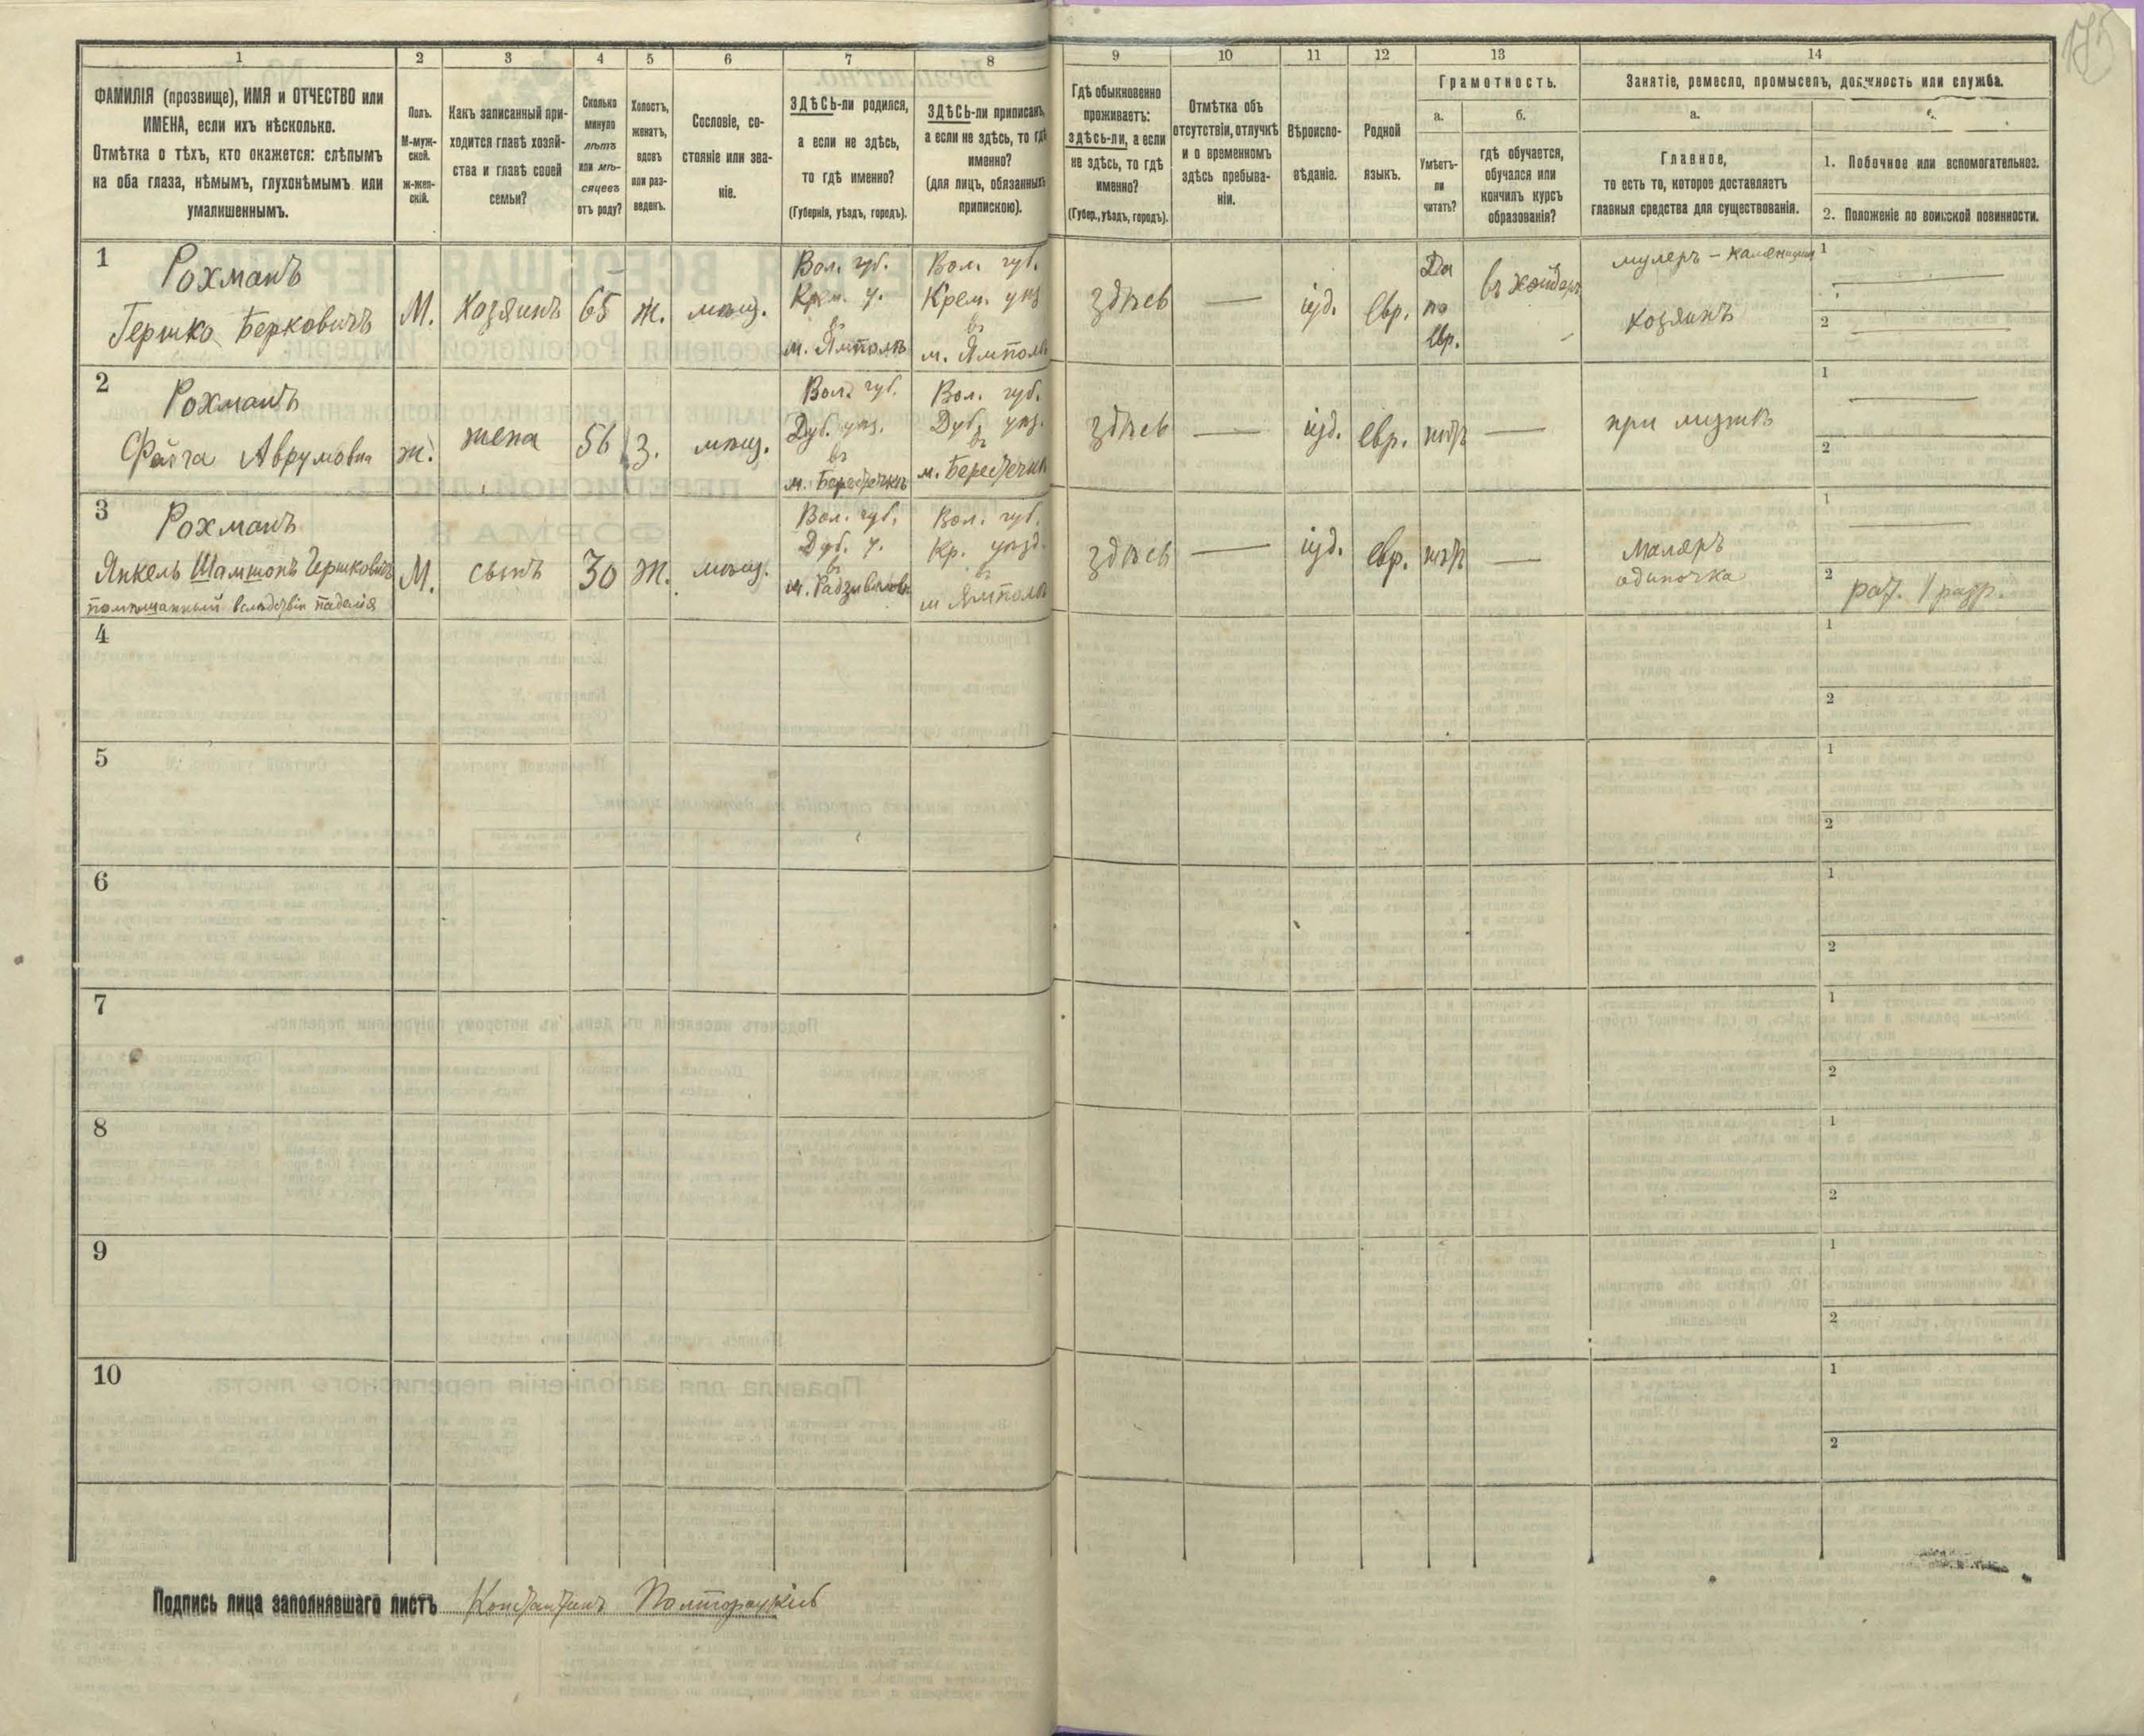 175
1 2 3 4 5 6 7 8 9 10 11 12 13 14
ФАМИЛІЯ (прозвище), ИМЯ и ОТЧЕСТВО или
ИМЕНА, если ихъ нѣсколько.
Отмѣтка о тѣхъ, кто окажется: слѣпымъ
на оба глаза, нѣмымъ, глухонѣмымъ или
умалишеннымъ.
Полъ.
М-муж-
ской.
ж-жен-
скій.
Какъ записанный при-
ходится главѣ хозяй-
ства и главѣ своей
семьи?
Сколько
минуло
лѣтъ
или мѣ-
сяцевъ
отъ роду?
Холостъ,
женатъ,
вдовъ
или раз-
веденъ.
Сословіе, со-
стояніе или зва-
ніе.
ЗДѢСЬ-ли родился,
а если не здѣсь,
то гдѣ именно?
(Губернія, уѣздъ, городъ).
ЗДѢСЬ-ли приписанъ,
а если не здѣсь, то гдѣ
именно?
(для лицъ, обязанныхъ
припискою).
Гдѣ обыкновенно
проживаетъ:
здѣсь-ли, а если
не здѣсь, то гдѣ
именно?
(Губер., уѣздъ, городъ).
Отмѣтка объ
отсутствіи, отлучкѣ
и о временномъ
здѣсь пребыва-
ніи.
Вѣроиспо-
вѣданіе.
Родной
языкъ.
Грамотность.
а.
Умѣетъ-
ли
читать?
б.
гдѣ обучается,
обучался или
кончилъ курсъ
образованія?
Занятіе, ремесло, промыселъ, должность или служба.
а.
Главное,
то есть то, которое доставляетъ
главныя средства для существованія.
1. Побочное или вспомогательное.
2. Положеніе по воинской повинности.
1
Рохманъ
Гершко Берковичъ
М.
хозяинъ
65
ж.
мѣщ.
Вол. губ.
Крем. у.
въ
м. Ямполѣ
Вол. губ.
Крем. уѣз
въ
м. Ямполѣ
здѣсь
—
іуд.
евр.
Да
по
евр.
въ хейдерѣ
хозяинъ
1
2
2
Рохманъ
Файга Аврумовна
ж.
жена
56
з.
мѣщ.
Вол. губ.
Дуб. уѣз.
въ
м. Берестечкѣ
Вол. губ.
Дуб. уѣз.
въ
м. Берестечкѣ
здѣсь
—
іуд.
евр.
нѣтъ
—
при мужѣ
1
2
3
Рохманъ
Янкель Шамшонъ Гершковичъ
помѣшанный вслѣдствіи паденія
М.
сынъ
30
ж.
мѣщ.
Вол. губ.
Дуб. у.
въ
м. Радзивиловѣ
Вол. губ.
Кр. уѣзд.
въ
м Ямполѣ
здѣсь
—
іуд.
евр.
нѣтъ
—
Маляръ
одиночка
1
2
рат. 1 разр.
4
1
2
5
1
2
6
1
2
7
1
2
8
1
2
9
1
2
10
1
2
Подпись лица заполнявшаго листъ Константинъ